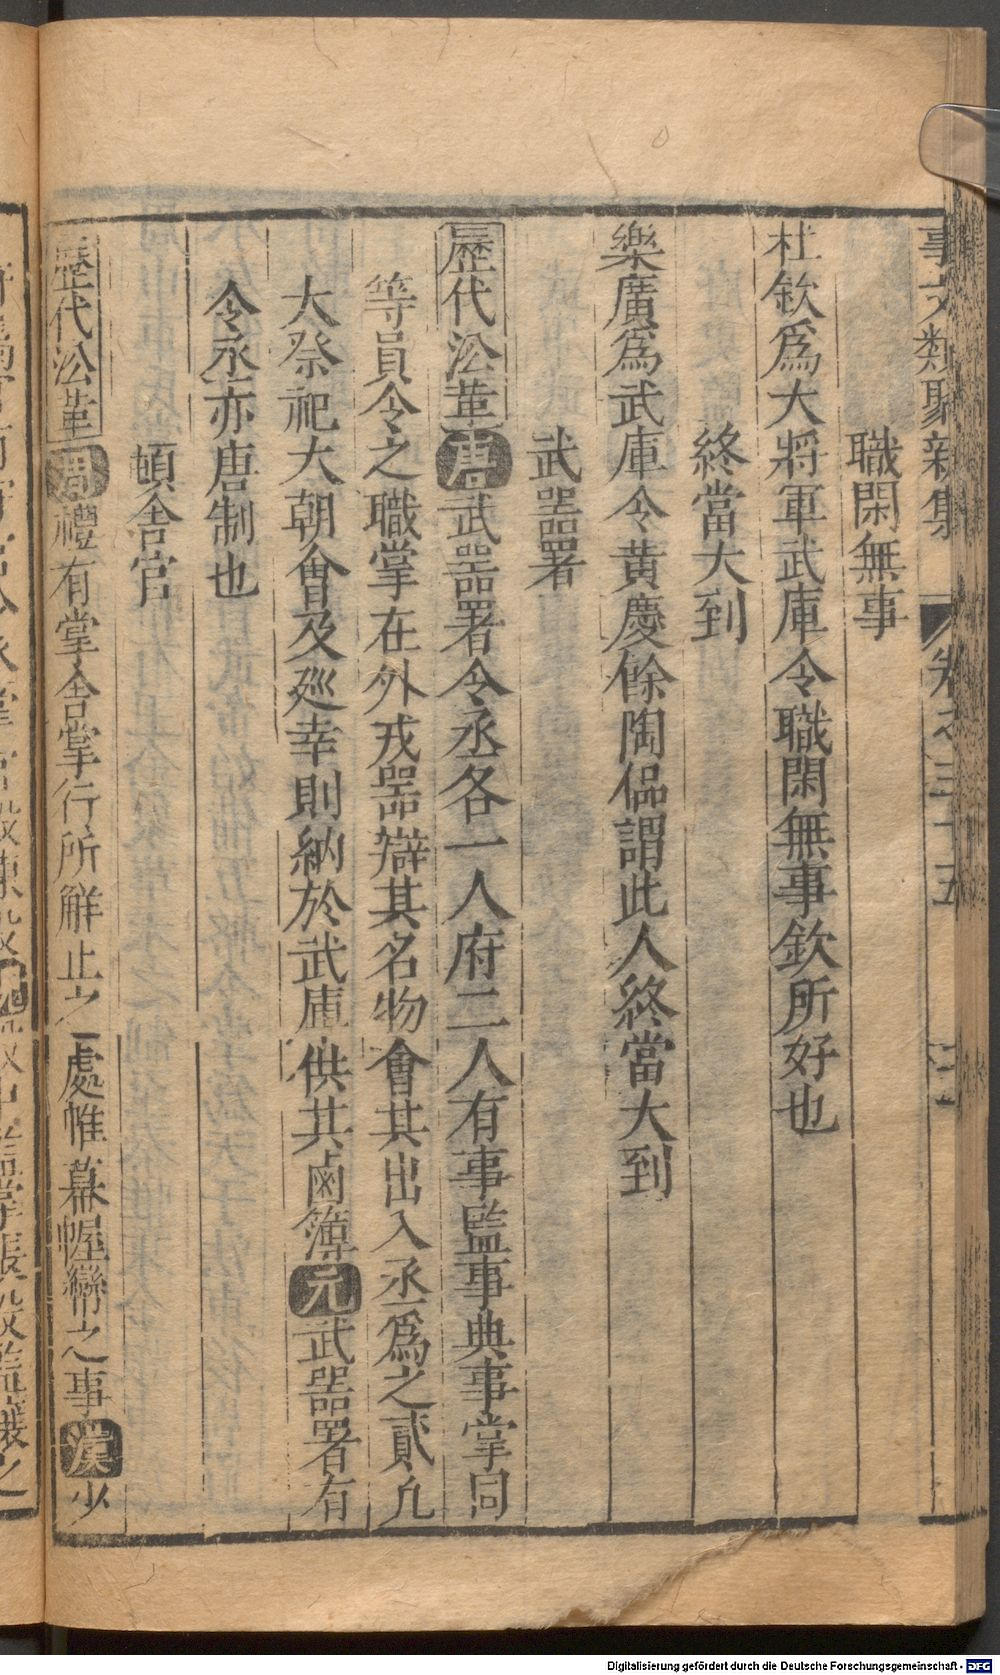 事文類聚新集 卷之三十五
職閑無事
杜欽爲大將軍武庫令職閑無事欽所好也
終當大到
樂廣爲武庫令黄慶餘陶侃謂此人終當大到
武器署
歷代㳂革唐武器署令丞各一人府二人有事監事典事掌同
等員令之職掌在外戎器辯其名物會其出入丞爲之貳凢
大祭祀大朝會及廵幸則納於武庫供其鹵簿元武器署有
令丞亦唐制也
頓舍官
歷代㳂革周禮有掌舍掌行所解止之處帷幕幄帟之事漢少
Digitalisierung gefördert durch die Deutsche Forschungsgemeinschaft - DFG